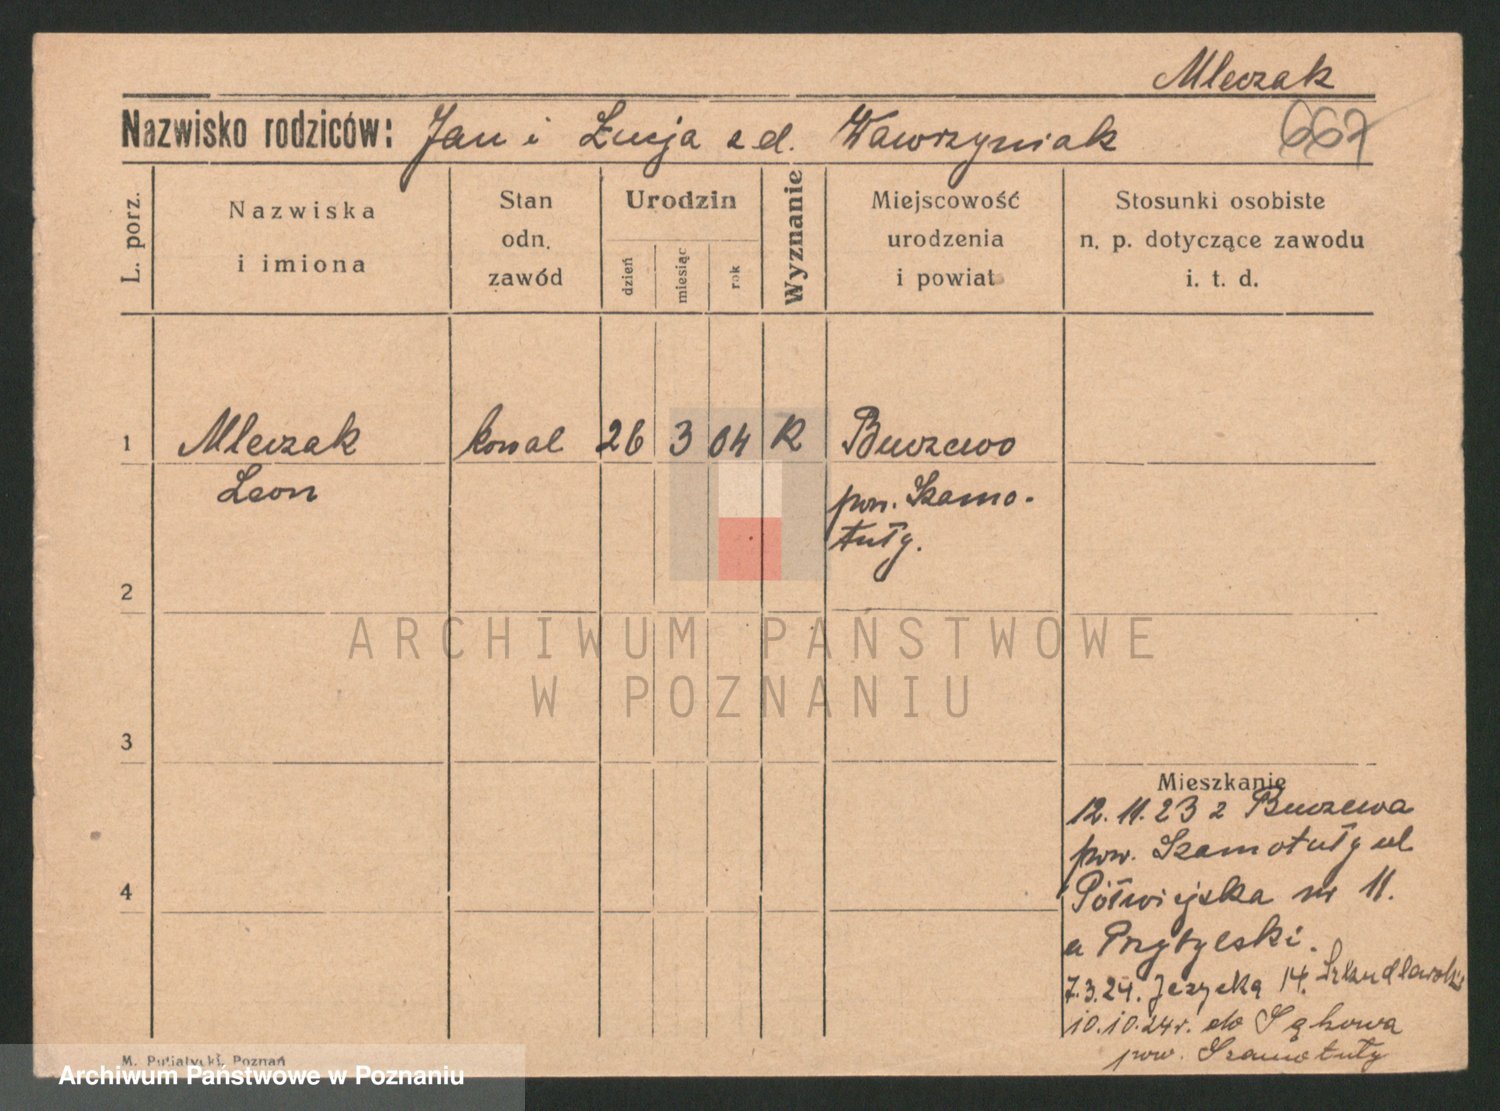 Mleczak
Nazwisko rodziców: Jan i Łucja z d. Wawrzyniak
667
L. porz.
Nazwiska
i imiona
Stan
odn.
zawód
Urodzin
dzień
miesiąc
rok
Wyznanie
Miejscowość
urodzenia
i powiat
Stosunki osobiste
n. p. dotyczące zawodu
i. t. d.
1
Mleczak kowal 26 3 04 R Buszewo
Leon
pow. Szamo-
tuły.
2
ARCHIWUM PAŃSTWOWE
W POZNANIU
3
Mieszkanie
12.11.23 z Buszewa
pow. Szamotuły ul.
Półwiejska nr 11.
u Przybylski.
7.3.24. Jeżycka 14. Szkudlarski
10.10.24r. do Sękowa
pow. Szamotuły
4
M. Putiatycki, Poznań
Archiwum Państwowe w Poznaniu